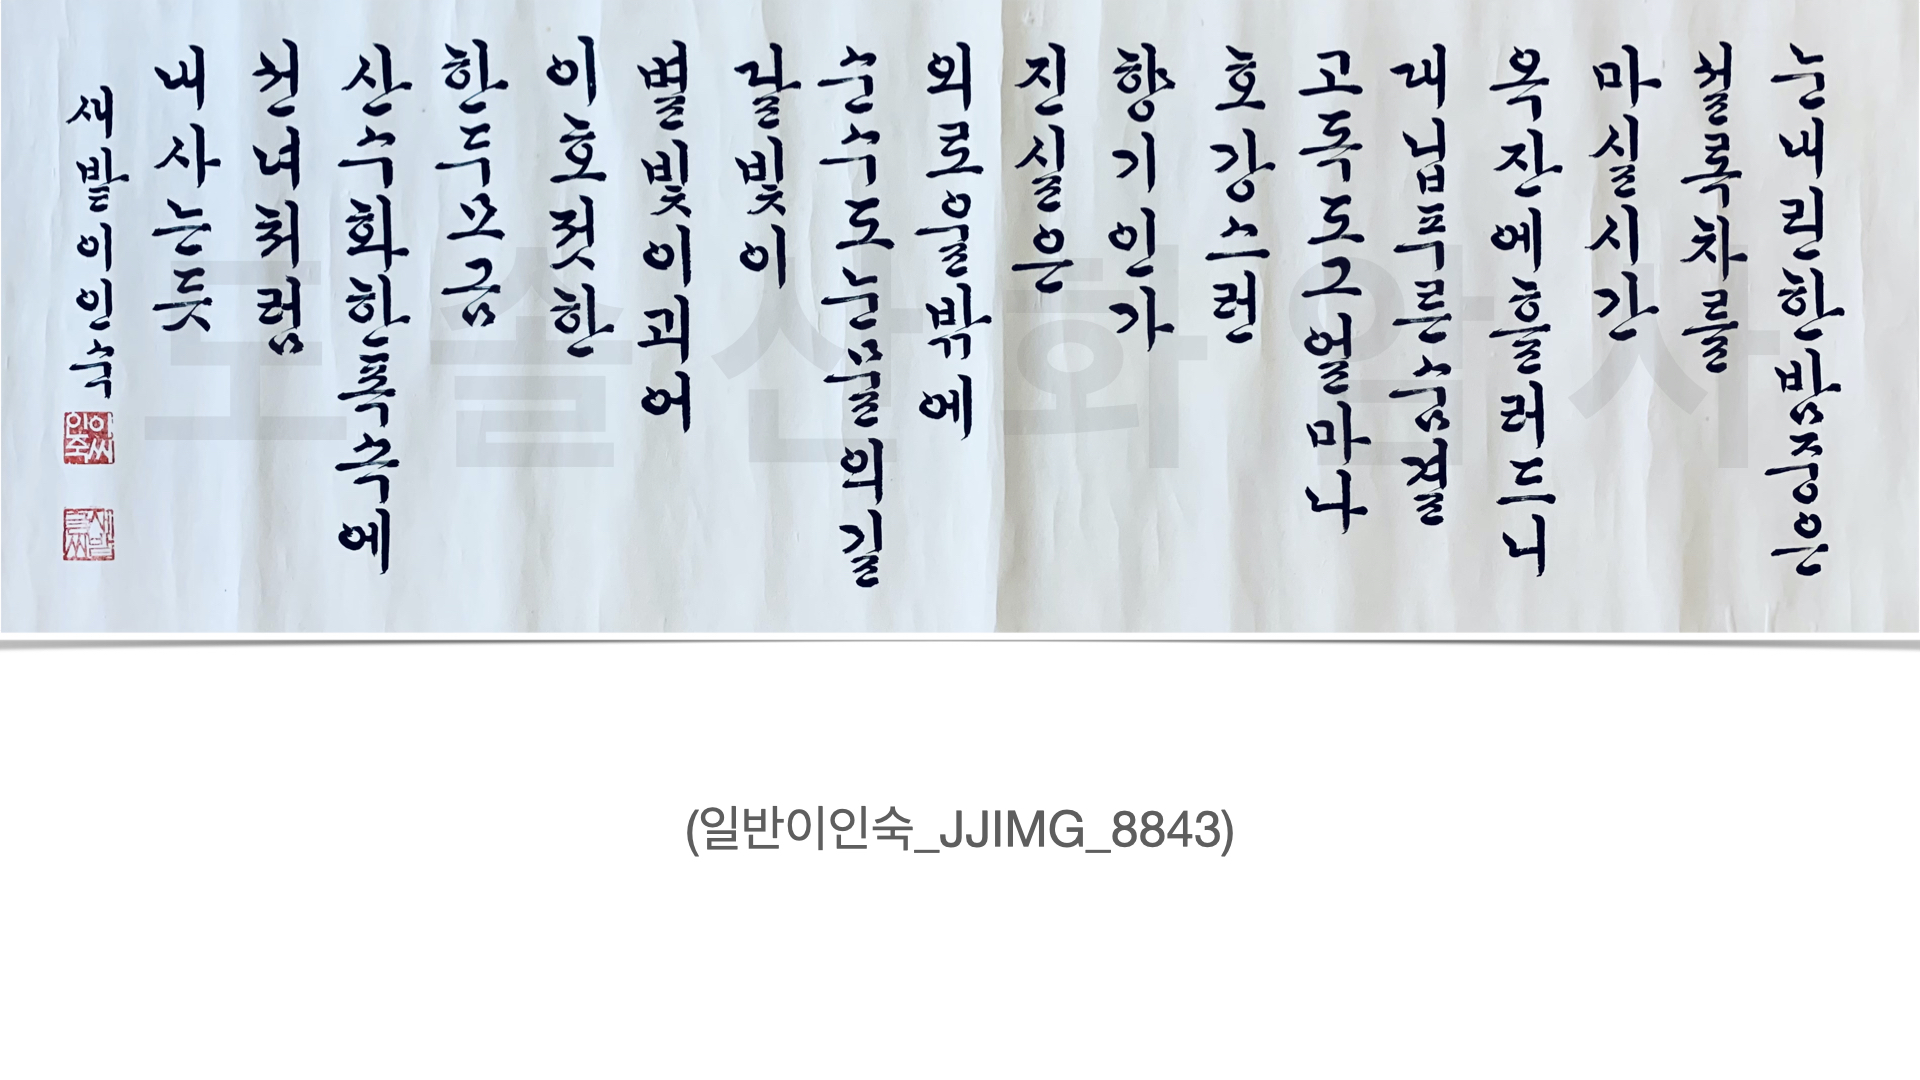 눈내린한밤중은
철록차를
마실시간
옥잔에흘러드니
대닙푸른숨결
고독도그얼마나
호강스런
향기인가
진실은
외로울밖에
순수도눈물의길
달빛이
별빛이괴어
이호젓한
한두모금
산수화한폭속에
선녀처럼
내사는듯
새밭이인숙
도솔산화암사
(일반이인숙_JJIMG_8843)